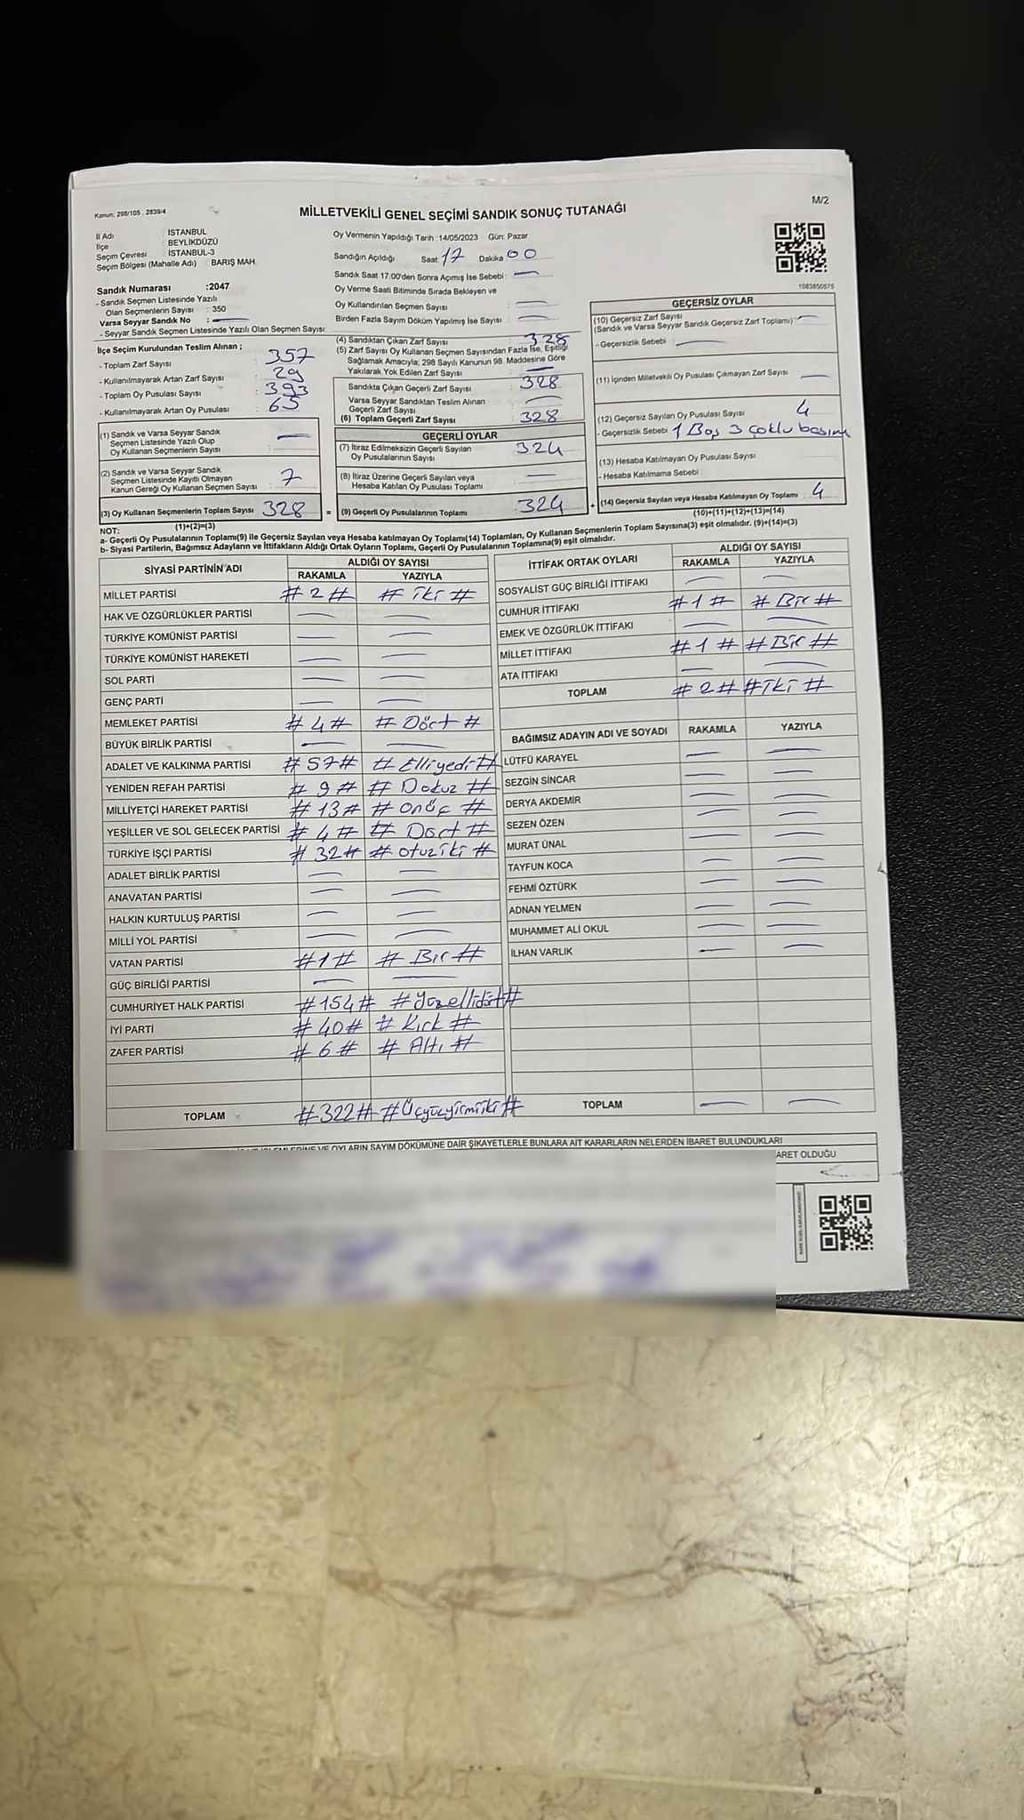 Kanun: 298/105 , 2839/4
M/2
MİLLETVEKİLİ GENEL SEÇİMİ SANDIK SONUÇ TUTANAĞI
İl Adı İSTANBUL
İlçe BEYLİKDÜZÜ
Seçim Çevresi İSTANBUL-3
Seçim Bölgesi (Mahalle Adı) BARIŞ MAH.
Sandık Numarası :2047
- Sandık Seçmen Listesinde Yazılı
Olan Seçmenlerin Sayısı : 350
Varsa Seyyar Sandık No : —
- Seyyar Sandık Seçmen Listesinde Yazılı Olan Seçmen Sayısı:
Oy Vermenin Yapıldığı Tarih :14/05/2023 Gün: Pazar
Sandığın Açıldığı Saat 17 Dakika 00
Sandık Saat 17.00'den Sonra Açımış İse Sebebi : —
Oy Verme Saati Bitiminde Sırada Bekleyen ve
Oy Kullandırılan Seçmen Sayısı : —
Birden Fazla Sayım Döküm Yapılmış İse Sayısı : —
1083850575
İlçe Seçim Kurulundan Teslim Alınan ;
- Toplam Zarf Sayısı : 357
- Kullanılmayarak Artan Zarf Sayısı : 29
- Toplam Oy Pusulası Sayısı : 393
- Kullanılmayarak Artan Oy Pusulası : 65
(1) Sandık ve Varsa Seyyar Sandık
Seçmen Listesinde Yazılı Olup
Oy Kullanan Seçmenlerin Sayısı : —
(2) Sandık ve Varsa Seyyar Sandık
Seçmen Listesinde Kayıtlı Olmayan
Kanun Gereği Oy Kullanan Seçmen Sayısı : 7
(3) Oy Kullanan Seçmenlerin Toplam Sayısı : 328
(1)+(2)=(3)
(4) Sandıktan Çıkan Zarf Sayısı : 328
(5) Zarf Sayısı Oy Kullanan Seçmen Sayısından Fazla İse, Eşitliği
Sağlamak Amacıyla; 298 Sayılı Kanunun 98. Maddesine Göre
Yakılarak Yok Edilen Zarf Sayısı : —
Sandıkta Çıkan Geçerli Zarf Sayısı : 328
Varsa Seyyar Sandıktan Teslim Alınan
Geçerli Zarf Sayısı : —
(6) Toplam Geçerli Zarf Sayısı : 328
GEÇERLİ OYLAR
(7) İtiraz Edilmeksizin Geçerli Sayılan
Oy Pusulalarının Sayısı : 324
(8) İtiraz Üzerine Geçerli Sayılan veya
Hesaba Katılan Oy Pusulası Toplamı : —
= (9) Geçerli Oy Pusulalarının Toplamı : 324
GEÇERSİZ OYLAR
(10) Geçersiz Zarf Sayısı
(Sandık ve Varsa Seyyar Sandık Geçersiz Zarf Toplamı) : —
- Geçersizlik Sebebi : —
(11) İçinden Milletvekili Oy Pusulası Çıkmayan Zarf Sayısı : —
(12) Geçersiz Sayılan Oy Pusulası Sayısı : 4
- Geçersizlik Sebebi : 1 Boş 3 çoklu basım
(13) Hesaba Katılmayan Oy Pusulası Sayısı
- Hesaba Katılmama Sebebi :
+ (14) Geçersiz Sayılan veya Hesaba Katılmayan Oy Toplamı : 4
(10)+(11)+(12)+(13)=(14)
NOT:
a- Geçerli Oy Pusulalarının Toplamı(9) ile Geçersiz Sayılan veya Hesaba katılmayan Oy Toplamı(14) Toplamları, Oy Kullanan Seçmenlerin Toplam Sayısına(3) eşit olmalıdır. (9)+(14)=(3)
b- Siyasi Partilerin, Bağımsız Adayların ve İttifakların Aldığı Ortak Oyların Toplamı, Geçerli Oy Pusulalarının Toplamına(9) eşit olmalıdır.
SİYASİ PARTİNİN ADI ALDIĞI OY SAYISI
RAKAMLA YAZIYLA
MİLLET PARTİSİ # 2 # # iki #
HAK VE ÖZGÜRLÜKLER PARTİSİ — —
TÜRKİYE KOMÜNİST PARTİSİ — —
TÜRKİYE KOMÜNİST HAREKETİ — —
SOL PARTİ — —
GENÇ PARTİ — —
MEMLEKET PARTİSİ # 4 # # Dört #
BÜYÜK BİRLİK PARTİSİ — —
ADALET VE KALKINMA PARTİSİ # 57 # # Elliyedi #
YENİDEN REFAH PARTİSİ # 9 # # Dokuz #
MİLLİYETÇİ HAREKET PARTİSİ # 13 # # onüç #
YEŞİLLER VE SOL GELECEK PARTİSİ # 4 # # Dört #
TÜRKİYE İŞÇİ PARTİSİ # 32 # # otuziki #
ADALET BİRLİK PARTİSİ — —
ANAVATAN PARTİSİ — —
HALKIN KURTULUŞ PARTİSİ — —
MİLLİ YOL PARTİSİ — —
VATAN PARTİSİ # 1 # # Bir #
GÜÇ BİRLİĞİ PARTİSİ — —
CUMHURİYET HALK PARTİSİ # 154 # # Yüzellidört #
İYİ PARTİ # 40 # # Kırk #
ZAFER PARTİSİ # 6 # # Altı #
TOPLAM # 322 # # Üçyüzyirmiiki #
İTTİFAK ORTAK OYLARI ALDIĞI OY SAYISI
RAKAMLA YAZIYLA
SOSYALİST GÜÇ BİRLİĞİ İTTİFAKI — —
CUMHUR İTTİFAKI # 1 # # Bir #
EMEK VE ÖZGÜRLÜK İTTİFAKI — —
MİLLET İTTİFAKI # 1 # # Bir #
ATA İTTİFAKI — —
TOPLAM # 2 # # iki #
BAĞIMSIZ ADAYIN ADI VE SOYADI RAKAMLA YAZIYLA
LÜTFÜ KARAYEL — —
SEZGİN SİNCAR — —
DERYA AKDEMİR — —
SEZEN ÖZEN — —
MURAT ÜNAL — —
TAYFUN KOCA — —
FEHMİ ÖZTÜRK — —
ADNAN YELMEN — —
MUHAMMET ALİ OKUL — —
İLHAN VARLIK — —
TOPLAM — —
OYLARIN SAYIM DÖKÜMÜNE DAİR ŞİKAYETLERLE BUNLARA AİT KARARLARIN NELERDEN İBARET BULUNDUKLARI
ARET OLDUĞU